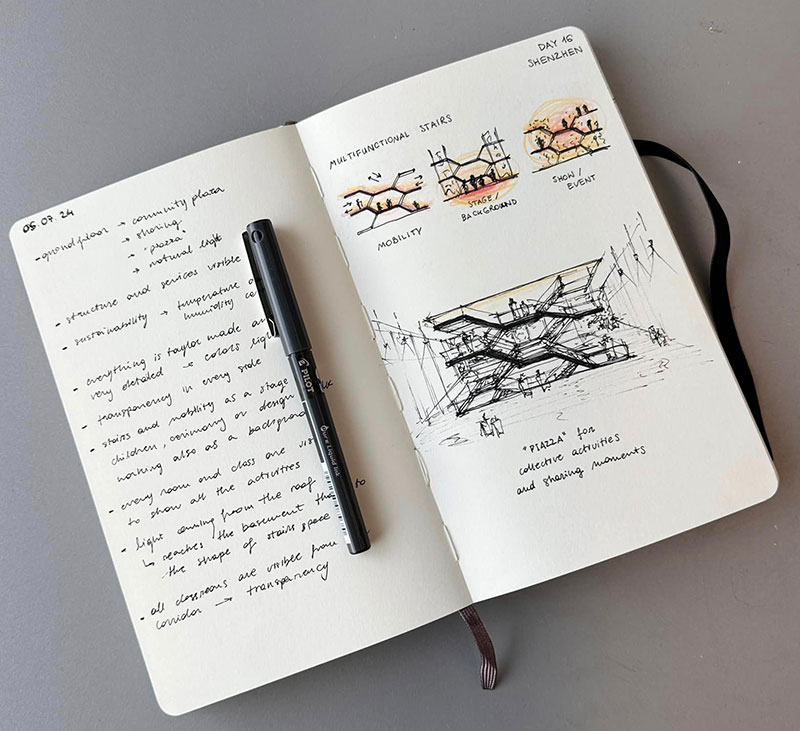 05.07.24
- ground floor → community plaza
→ sharing
→ "piazza"
→ natural light
- structure and services visible
- sustainability → temperature
humidity
- everything is taylor made
very detailed → colors
- transparency in every side
- stairs and mobility as a stage
children, cerimony or design
working also as a background
- every room and class are
to show all the activities
- light coming from the roof
↳ reaches the basement to
the shape of stairs space
- all classrooms are visible from
corridor → transparency
PILOT
Pure Liquid Ink
DAY 16
SHENZHEN
MULTIFUNCTIONAL STAIRS
MOBILITY
STAGE /
BACKGROUND
SHOW /
EVENT
"PIAZZA" for
collective activities
and sharing moments